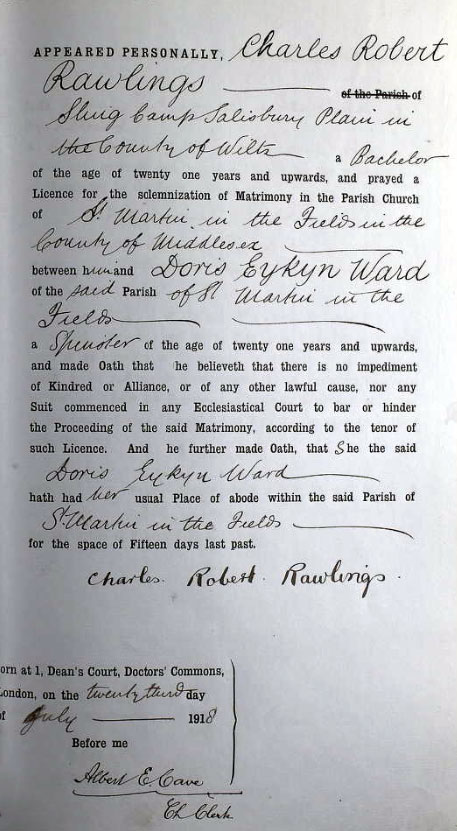 APPEARED PERSONALLY, Charles Robert
Rawlings of the Parish of
Sling Camp Salisbury Plain in
the County of Wilts a Bachelor
of the age of twenty one years and upwards, and prayed a
Licence for the solemnization of Matrimony in the Parish Church
of St. Martin in the Fields in the
County of Middlesex
between him and Doris Eykyn Ward
of the said Parish of St Martin in the
Fields
a Spinster of the age of twenty one years and upwards,
and made Oath that he believeth that there is no impediment
of Kindred or Alliance, or of any other lawful cause, nor any
Suit commenced in any Ecclesiastical Court to bar or hinder
the Proceeding of the said Matrimony, according to the tenor of
such Licence. And he further made Oath, that She the said
Doris Eykyn Ward
hath had her usual Place of abode within the said Parish of
St. Martin in the Fields
for the space of Fifteen days last past.
Charles. Robert. Rawlings.
orn at 1, Dean's Court, Doctors' Commons,
London, on the twenty third day
of July 1918
Before me
Albert E. Cave
Ch Clerk